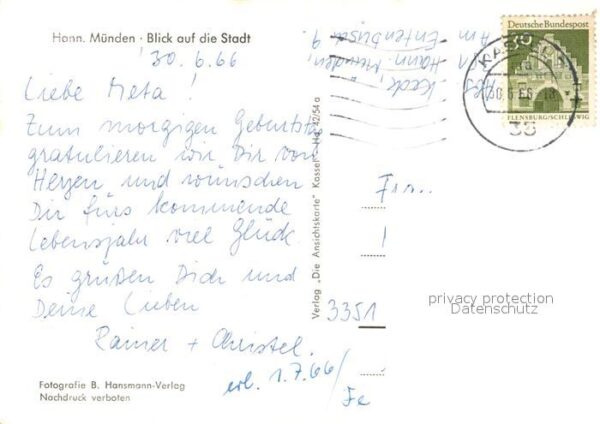 Hann. Münden · Blick auf die Stadt
30.6.66
Liebe Meta!
Zum morgigen Geburtstag
gratulieren wir Dir von
Herzen und wünschen
Dir fürs kommende
Lebensjahr viel Glück.
Es grüßen Dich und
Deine Lieben
Rainer + Christel.
Fotografie B. Hansmann-Verlag
Nachdruck verboten
Verlag „Die Ansichtskarte" Kassel - Ha 42/54 a
Hann. Münden
Am Entenbusch 9
Deutsche Bundespost
30
FLENSBURG/SCHLESWIG
KASSEL
35
Frau
3351
privacy protection
Datenschutz
erl. 1.7.66/
Fe